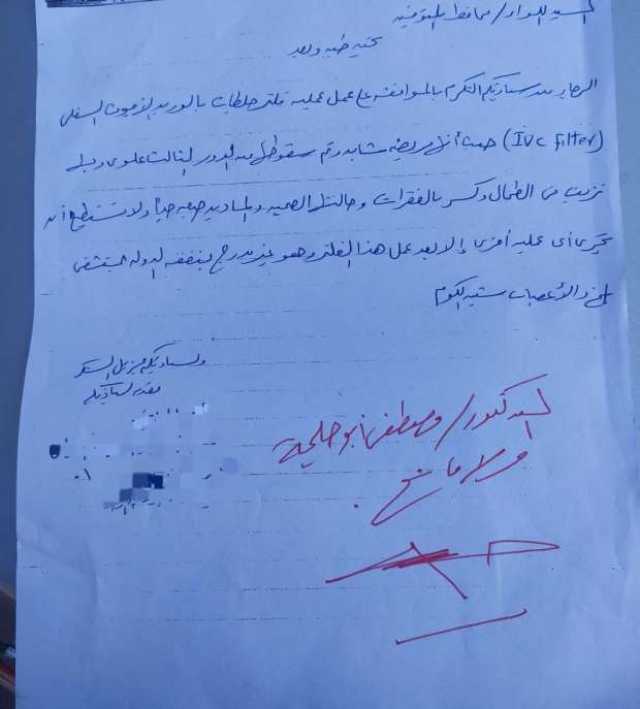 السيد اللواء / محافظ المنوفية
تحية طيبة وبعد
الرجاء من سيادتكم التكرم بالموافقة على عمل عملية فلتر جلطات بالوريد الأجوف السفلي
(IVC Filter) حيث أنني مريضة شابة وتم سقوطي من الدور الثالث علوي
نزيف في الطحال وكسر بالفقرات وحالتي الصحية والمادية صعبة جداً ولا تستطيع أن
تجرى أى عملية أخرى إلا بعد عمل هذا الفلتر وهو غير مدرج بنفقة الدولة بمستشفى
المخ والأعصاب شبين الكوم
ولسيادتكم جزيل الشكر
مقدمه لسيادتكم
السيد الدكتور / مصطفى أبو حليمة
ولا مانع